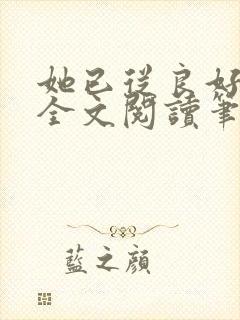 她已從良好
全文閱讀筆
藍之顏